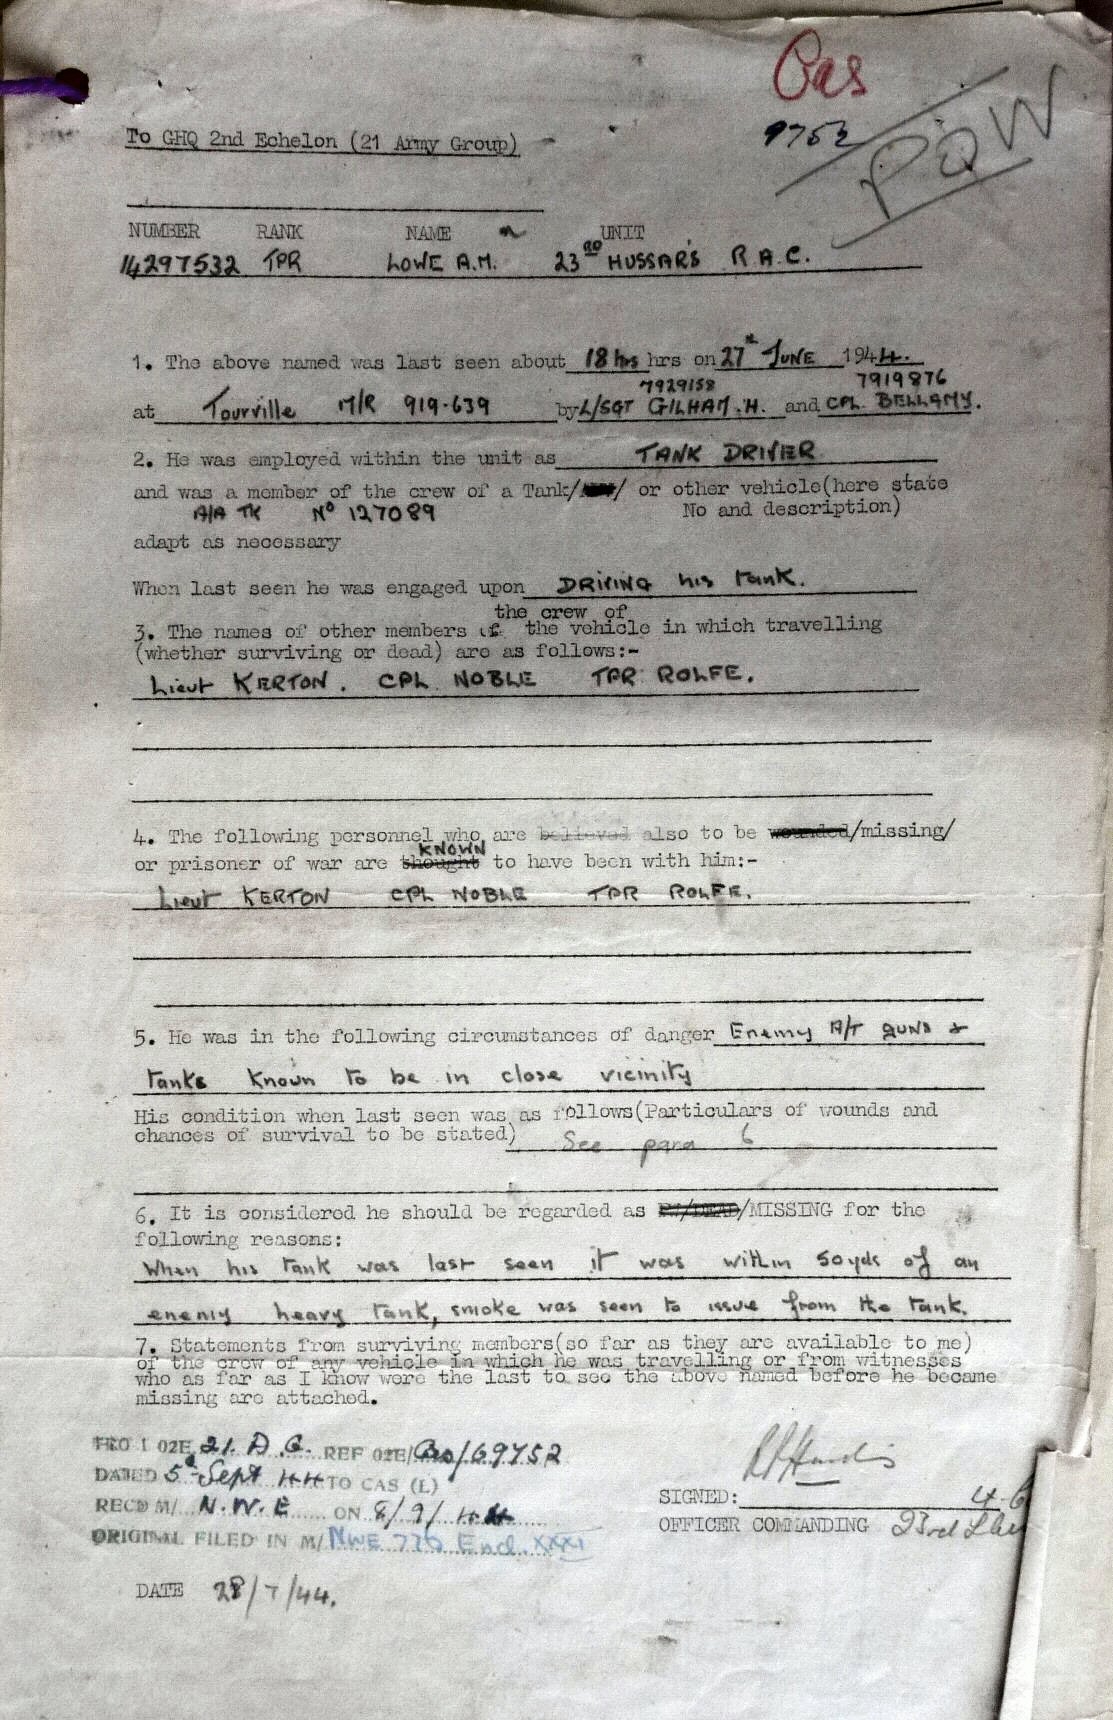 Cas
9752
POW
To GHQ 2nd Echelon (21 Army Group)
NUMBER RANK NAME UNIT
14297532 TPR LOWE A.M. 23RD HUSSARS R A.C.
1. The above named was last seen about 18 hrs hrs on 27th JUNE 1944.
7929158 7919876
at Tourville M/R 919-639 by L/SGT GILHAM.H. and CPL BELLAMY.
2. He was employed within the unit as TANK DRIVER
and was a member of the crew of a Tank/ / or other vehicle(here state
A/A TK No 127089 No and description)
adapt as necessary
When last seen he was engaged upon DRIVING his tank.
the crew of
3. The names of other members of the vehicle in which travelling
(whether surviving or dead) are as follows:-
Lieut KERTON. CPL NOBLE TPR ROLFE.
4. The following personnel who are believed also to be wounded/missing/
KNOWN
or prisoner of war are thought to have been with him:-
Lieut KERTON CPL NOBLE TPR ROLFE.
5. He was in the following circumstances of danger Enemy A/T guns &
tanks known to be in close vicinity
His condition when last seen was as follows(Particulars of wounds and
chances of survival to be stated) See para 6
6. It is considered he should be regarded as PW/DEAD/MISSING for the
following reasons:
When his tank was last seen it was within 50 yds of an
enemy heavy tank, smoke was seen to issue from the tank.
7. Statements from surviving members(so far as they are available to me)
of the crew of any vehicle in which he was travelling or from witnesses
who as far as I know were the last to see the above named before he became
missing are attached.
02E 21. A.G. REF 02E/Cas/69752
DATED 5th Sept 44 TO CAS (L)
RECD M/ N.W.E ON 8/9/44
ORIGINAL FILED IN M/ NWE 770 Encl. XXXI
SIGNED:
OFFICER COMMANDING 23rd
DATE 28/7/44.